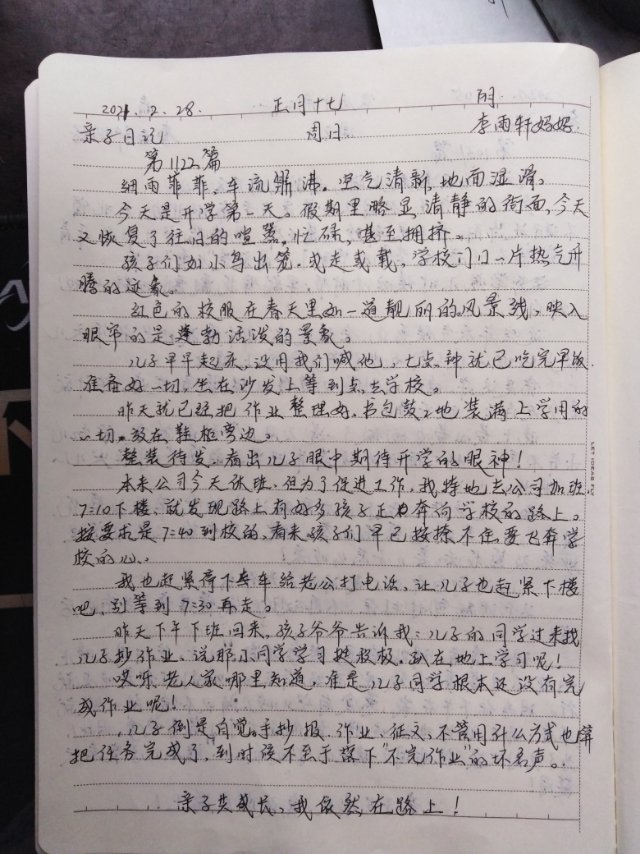 2021.2.28. 正月十七 阴.
亲子日记 周日 李雨轩妈妈
第1122篇
细雨菲菲,车流鼎沸。空气清新,地面湿滑。
今天是开学第一天。假期里略显清静的街面,今天
又恢复了往日的喧嚣,忙碌,甚至拥挤。
孩子们如小鸟出笼。或走或载,学校门口一片热气开
腾的迹象。
红色的校服在春天里如一道靓丽的风景线,映入
眼帘的是蓬勃活泼的景象。
儿子早早起床,没用我们喊他,七点钟就已吃完早饭
准备好一切,坐在沙发上等到点去学校。
昨天就已经把作业整理好,书包鼓鼓地装满上学用的
一切。放在鞋柜旁边。
整装待发,看出儿子眼中期待开学的眼神!
本来公司今天休班,但为了促进工作,我特地去公司加班
7:10下楼,就发现路上有好多孩子正奔向学校的路上。
按要求是7:40到校的,看来孩子们早已按捺不住要飞奔学
校的心。
我也赶紧停下车给老公打电话,让儿子也赶紧下楼
吧,别等到7:30再走。
昨天下午下班回来,孩子爷爷告诉我:儿子的同学过来找
儿子抄作业。说那小同学学习挺积极,趴在地上学习呢!
哎呀,老人家哪里知道,准是儿子同学根本还没有完
成作业呢!
儿子倒是自觉,手抄报、作业、征文,不管用什么方式也算
把任务完成了,到时候不至于落下"不完作业"的坏名声。
亲子共成长,我依然在路上!